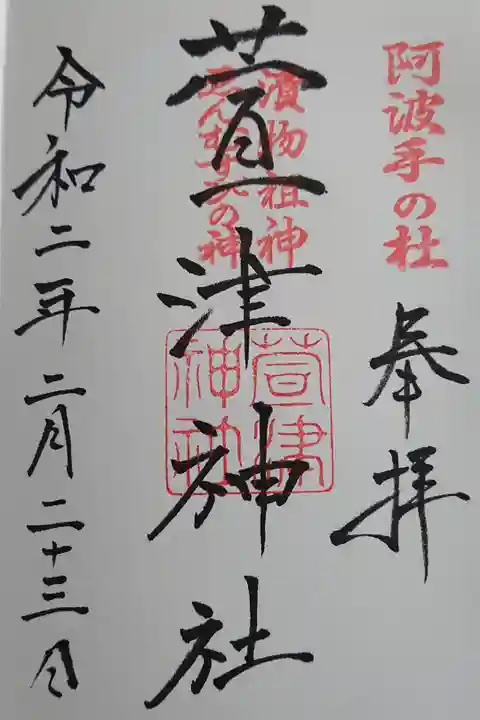 阿波手の杜
奉拝
漬物祖神
えんむすびの神
萱津神社
萱津神社
令和二年二月二十三日